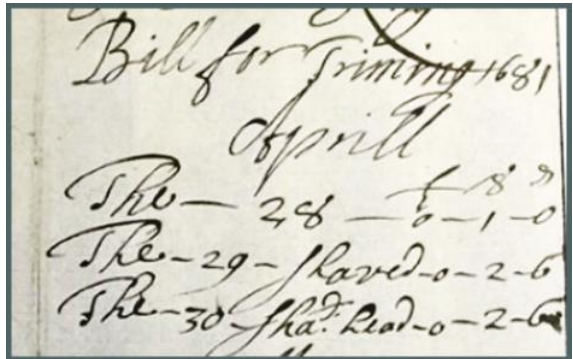 Bill for Triming 1681
Aprill
£ s d
The — 28 — 0 – 1 – 0
The – 29 – shaved – 0 – 2 – 6
The – 30 – sha^d: head – 0 – 2 – 6